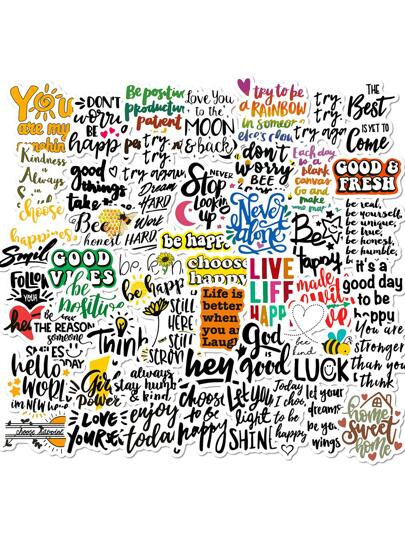 You
are my
DON'T
worri
BE
happ
Be positiv
productiv
patient
Love You
to the
MOON
& back
try to be
a RAINBOW
in someone
else's cloud
try
try
try again
THE
Best
IS YET TO
Come
Kindness
is
Always
in
choose
happines
good
things
take
try
try
try again
Dream
HARD
Work
HARD
NEVER
Stop
Looking
up
don't
worry
BEE
Each day
is a
blank
canvas
Go and
make
GOOD &
FRESH
Bee
honest
be happ
Never
alone
Be
happy
be real,
be yourself,
be unique,
be true,
be honest,
be humble,
Smile
FOLLOW
YOUR
GOOD
VIBES
be
Positive
be happ
choose
happy
LIVE
LIFE
HAPP
made
it's a
good day
to be
happy
he
BE THE REASON
SOMEONE
DAY
Think
still
HERE
still
STRON
Life is
better
when
you ar
Laugh
God
is
good
bee
kind
You are
stronger
than you
think
hello
WORL
I'M NEW
Girl
Power
always
stay humb
& kind
hey
LUCK
choose happines
LOVE
YOURSE
enjoy
toda
choos
to be
happy
Let you
light
SHIN
Today
I choo
to be
happy
let your
dreams
be you
wings
home
Sweet
home